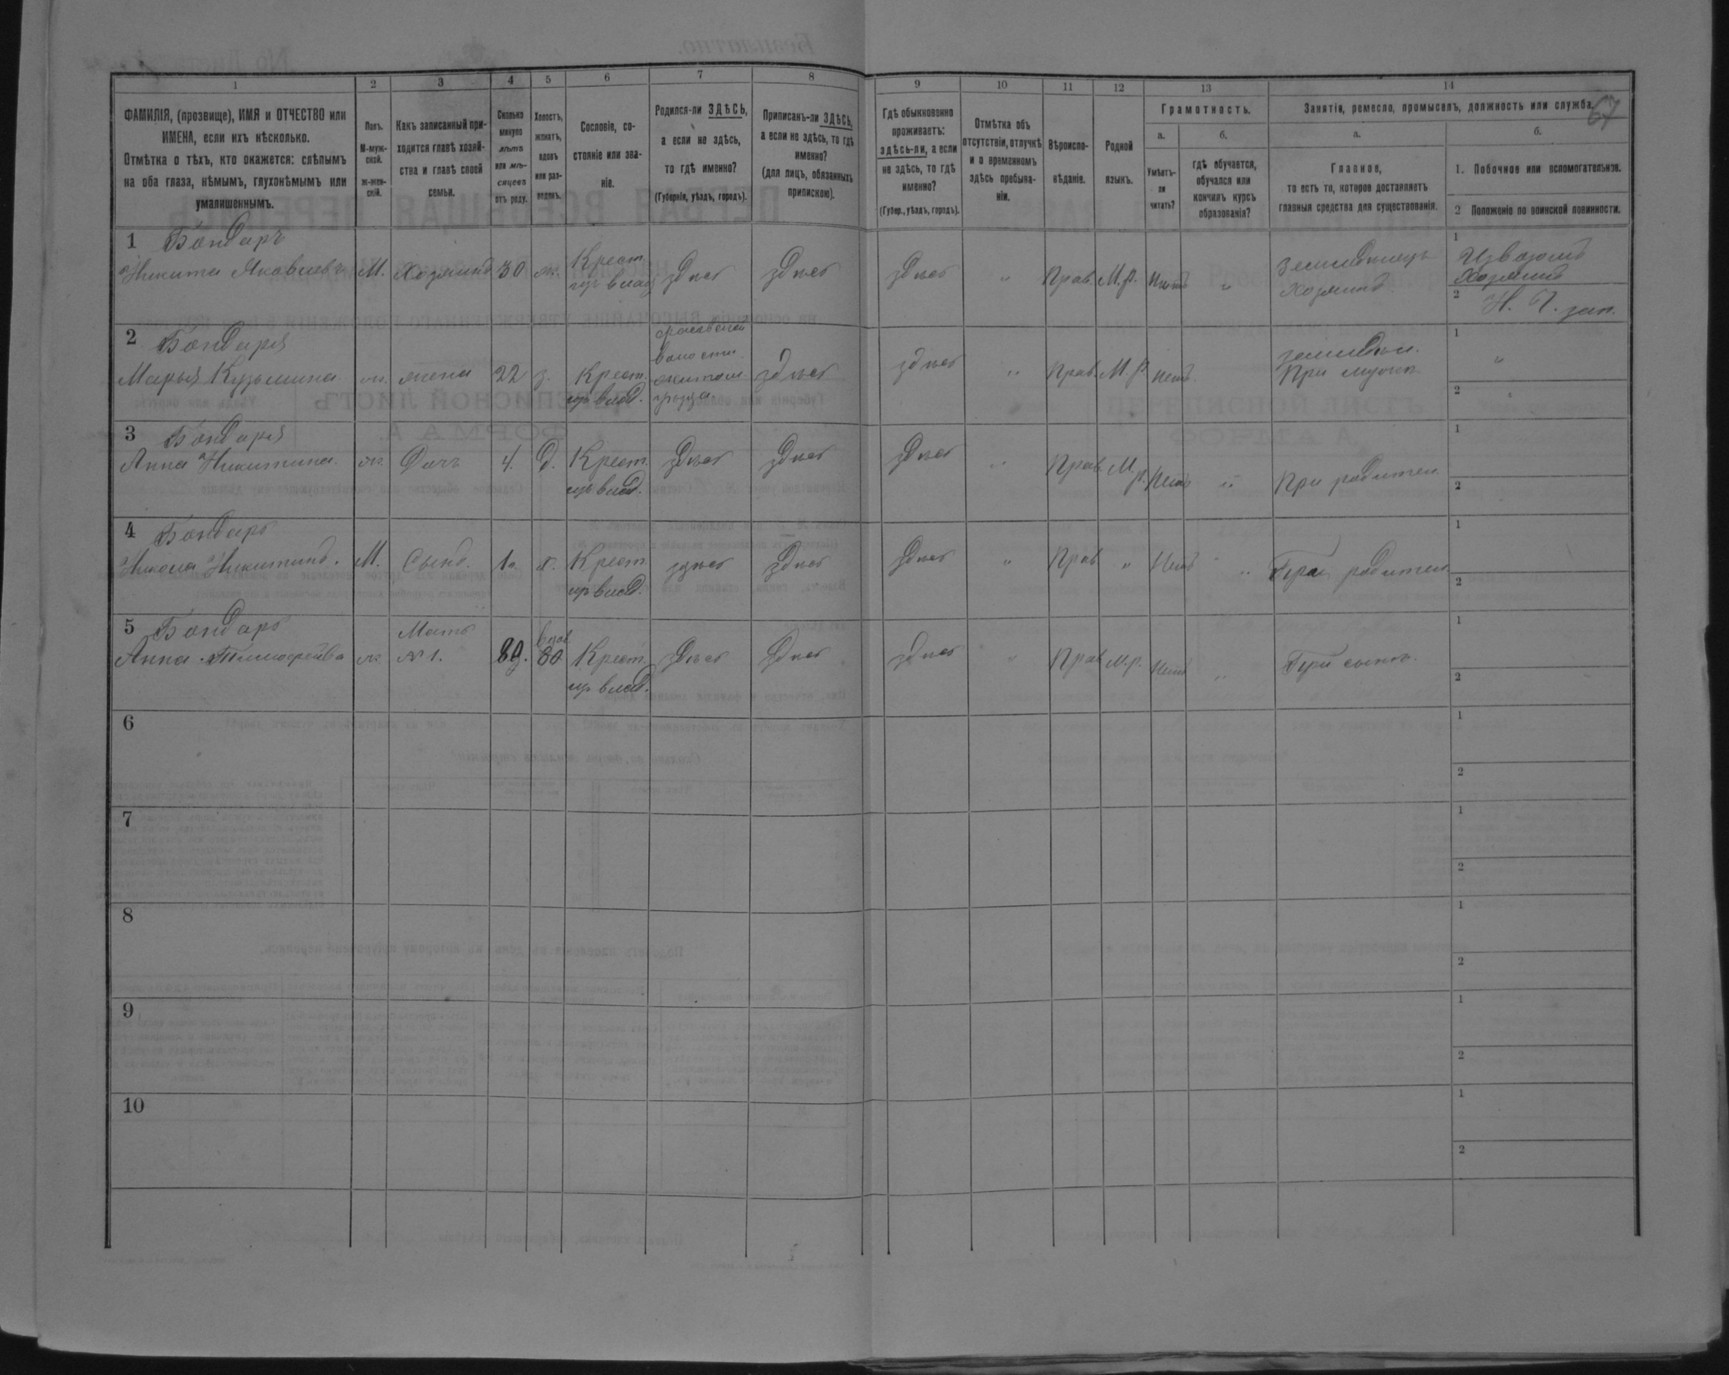 67
1
2
3
4
5
6
7
8
9
10
11
12
13
14
ФАМИЛІЯ, (прозвище), ИМЯ и ОТЧЕСТВО или
ИМЕНА, если ихъ нѣсколько.
Отмѣтка о тѣхъ, кто окажется: слѣпымъ
на оба глаза, нѣмымъ, глухонѣмымъ или
умалишеннымъ.
Полъ.
М-муж-
ской.
ж-жен-
скій.
Какъ записанный при-
ходится главѣ хозяй-
ства и главѣ своей
семьи.
Сколько
минуло
лѣтъ
или мѣ-
сяцевъ
отъ роду.
Холостъ,
женатъ,
вдовъ
или раз-
веденъ.
Сословіе, со-
стояніе или зва-
ніе.
Родился-ли ЗДѢСЬ,
а если не здѣсь,
то гдѣ именно?
(Губернія, уѣздъ, городъ).
Приписанъ-ли ЗДѢСЬ,
а если не здѣсь, то гдѣ
именно?
(для лицъ, обязанныхъ
припискою).
Гдѣ обыкновенно
проживаетъ:
здѣсь-ли, а если
не здѣсь, то гдѣ
именно?
(Губер., уѣздъ, городъ).
Отмѣтка объ
отсутствіи, отлучкѣ
и о временномъ
здѣсь пребыва-
ніи.
Вѣроиспо-
вѣданіе.
Родной
языкъ.
Грамотность.
а.
б.
Умѣетъ-
ли
читать?
гдѣ обучается,
обучался или
кончилъ курсъ
образованія?
Занятія, ремесло, промыселъ, должность или служба.
а.
б.
Главное,
то есть то, которое доставляетъ
главныя средства для существованія.
1. Побочное или вспомогательное.
2 Положеніе по воинской повинности.
1 Бондарь
Никита Яковлевъ М. Хозяинъ 30 ж. Крест. изъ влад. здѣсь здѣсь здѣсь " Прав. М.р. Нѣтъ " Земледѣлецъ Хозяинъ
1 Извозомъ
Хозяинъ
2 Н. Ч. зап.
2 Бондарь
Марья Кузьмина ж. жена 22 з. Крест. изъ влад.
волости
здѣсь здѣсь " Прав. М.р. Нѣтъ земледѣл.
При мужѣ
1 "
2 "
3 Бондарь
Анна Никитина ж. Дочь 4. д. Крест. изъ влад. здѣсь здѣсь здѣсь " Прав. М.р. Нѣтъ " При родител.
1
2
4 Бондарь
Никитинъ. М. Сынъ. 1. х. Крест. изъ влад. здѣсь здѣсь здѣсь " Прав " Нѣтъ " При родител.
1
2
5 Бондарь
Анна Тимофеѣва ж. Мать №1. 80. вдов. Крест. изъ влад. здѣсь здѣсь здѣсь " Прав. М.р. Нѣтъ " При сынѣ.
1
2
6
1
2
7
1
2
8
1
2
9
1
2
10
1
2